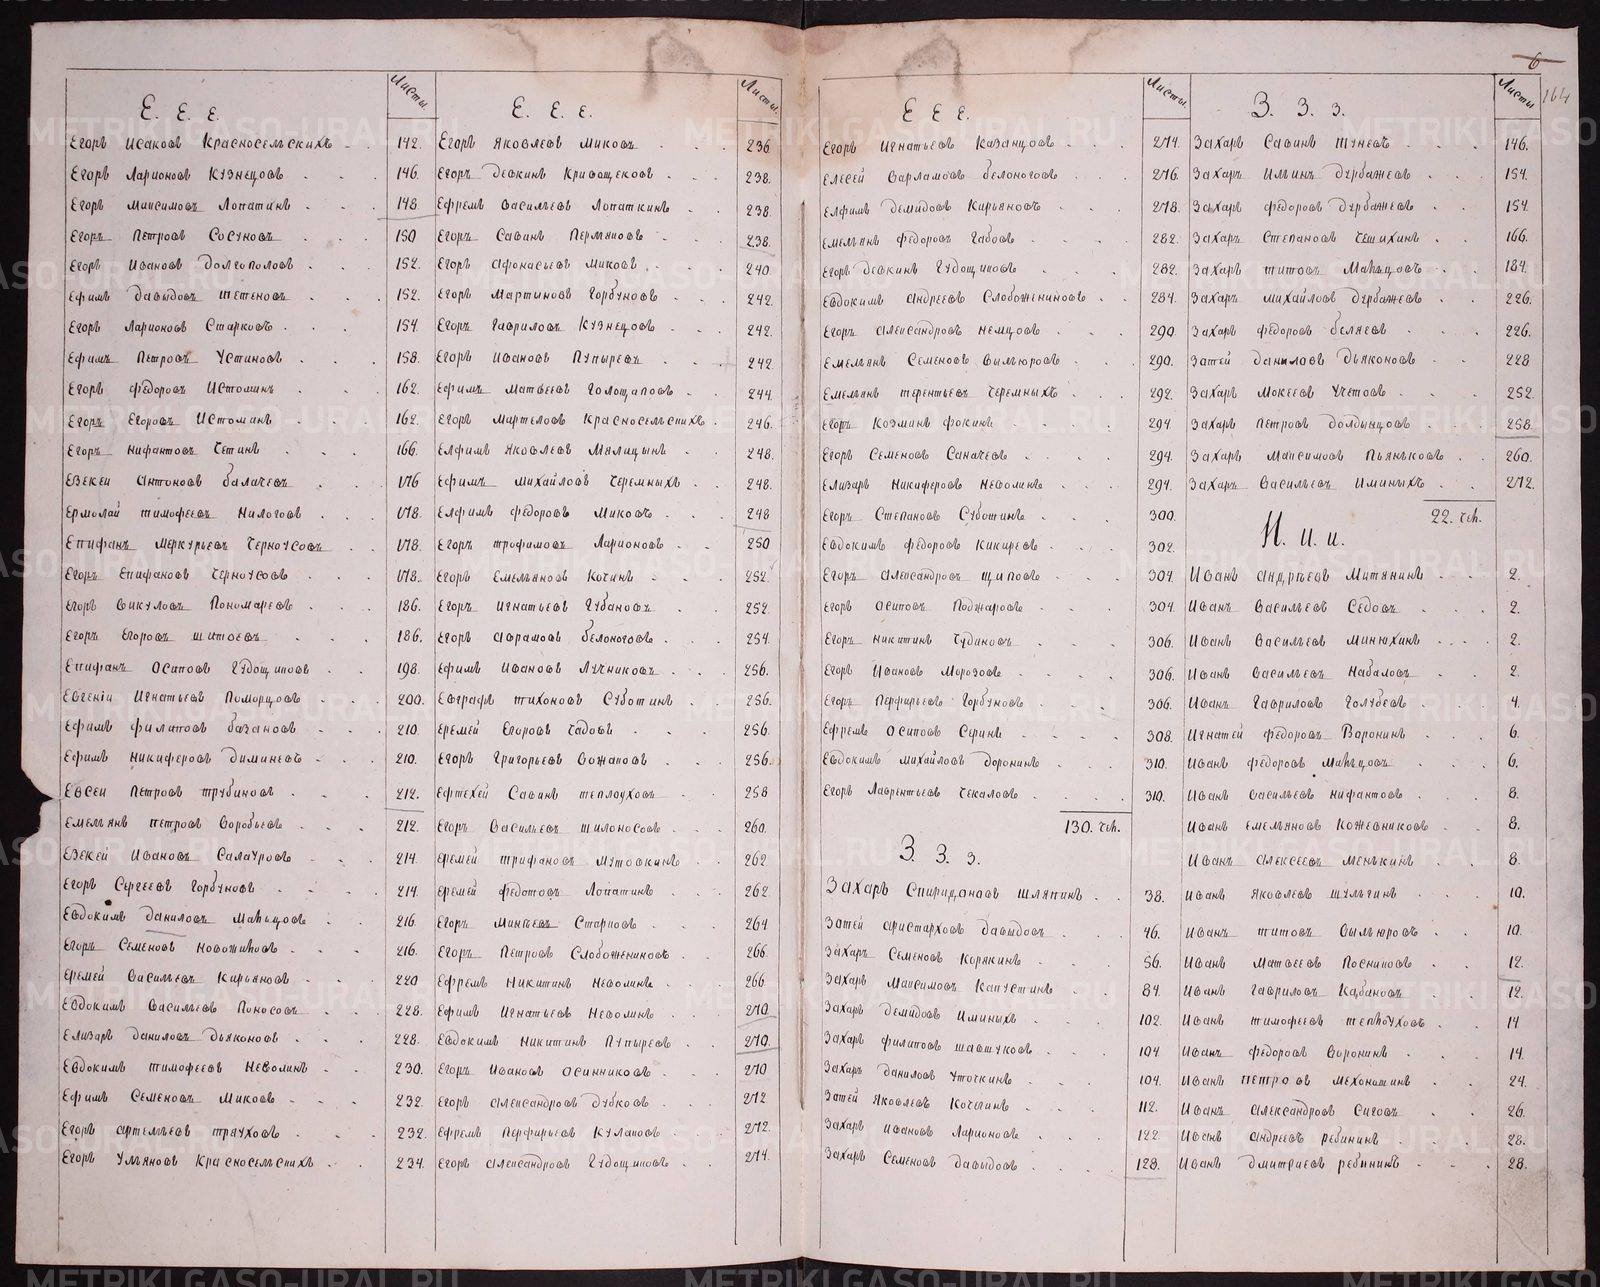 6
164
Е. Е. Е.
Листы.
Егоръ Исаковъ Красносельскихъ 142.
Егоръ Ларионовъ Кузнецовъ 146.
Егоръ Максимовъ Лопатинъ 148
Егоръ Петровъ Сосуновъ 150
Егоръ Ивановъ Долгополовъ 152.
Ефимъ Давыдовъ 152.
Егоръ Ларионовъ Старковъ 154.
Ефимъ Петровъ Устиновъ 158.
Егоръ Федоровъ Истоминъ 162.
Егоръ Егоровъ Истоминъ 162.
Егоръ Нифантовъ Четинъ 166.
Езекей Антоновъ Балачевъ 176
Ермолай Тимофеевъ Нилоговъ 178.
Епифанъ Меркурьевъ Черноусовъ 178.
Егоръ Епифановъ Черноусовъ 178.
Егоръ Викуловъ Пономаревъ 186.
Егоръ Егоровъ Шитоевъ 186.
Епифанъ Осиповъ Гудощиковъ 198.
Евгеній Игнатьевъ Поморцовъ 200.
Ефимъ Филатовъ Базановъ 210.
Ефимъ Никиферовъ 210.
Евсеи Петровъ Трубиновъ 212.
Емельянъ Петровъ Воробьевъ 212.
Езекей Ивановъ Салауровъ 214.
Егоръ Сергеевъ Горбуновъ 214.
Евдокимъ Даниловъ Мальцовъ 216.
Егоръ Семеновъ Новожиловъ 216.
Еремей Васильевъ Карьяновъ 220
Евдокимъ Васильевъ Поносовъ 228.
Елизаръ Даниловъ Дьяконовъ 228.
Евдокимъ Тимофеевъ Неволинъ 230.
Ефимъ Семеновъ Миковъ 232.
Егоръ Артемьевъ Трауховъ 232.
Егоръ Ульяновъ Красносельскихъ 234.
Е. Е. Е.
Листы.
Егоръ Яковлевъ Миковъ 236
Егоръ Девкинъ Кривощековъ 238.
Ефремъ Васильевъ Лопаткинъ 238.
Егоръ Савинъ Пермяковъ 238.
Егоръ Афонасьевъ Миковъ 240
Егоръ Мартыновъ Горбуновъ 242.
Егоръ Гавриловъ Кузнецовъ 242.
Егоръ Ивановъ Пупыревъ 242.
Ефимъ Матвеевъ Голощаповъ 244.
Егоръ Мартеловъ Красносельскихъ 246.
Елфимъ Яковлевъ Мялицынъ 248.
Ефимъ Михайловъ Черемныхъ 248.
Елфимъ Федоровъ Миковъ 248
Егоръ Трофимовъ Ларионовъ 250
Егоръ Емельяновъ Кочинъ 252.
Егоръ Игнатьевъ Губановъ 252.
Егоръ Аврамовъ Белоноговъ 254.
Ефимъ Ивановъ Лучниковъ 256.
Евграфъ Тихоновъ Суботинъ 256.
Еремей Егоровъ Чадовъ 256.
Егоръ Григорьевъ Вожаковъ 256.
Ефтехей Савинъ Теплоуховъ 258
Егоръ Васильевъ Шилоносовъ 260.
Еремей Трифановъ Мутовкинъ 262
Еремей Федотовъ Лопатинъ 262
Егоръ Минѣевъ Старковъ 264
Егоръ Петровъ Слобожениновъ 266
Ефремъ Никитинъ Неволинъ 266.
Ефимъ Игнатьевъ Неволинъ 270
Евдокимъ Никитинъ Пупыревъ 270.
Егоръ Ивановъ Осинниковъ 270
Егоръ Александровъ Дубковъ 272
Ефремъ Перфирьевъ Кулаковъ 272.
Егоръ Александровъ Гудощиковъ 274.
Е Е Е.
Листы.
Егоръ Игнатьевъ Казанцовъ 274.
Елесей Варламовъ Белоноговъ 276.
Елфимъ Демидовъ Карьяновъ 278.
Емельянъ Федоровъ Габовъ 282.
Егоръ Девкинъ Гудощиковъ 282.
Евдокимъ Андреевъ Слобожениновъ 284.
Егоръ Александровъ Немцовъ 290.
Емельянъ Семеновъ Вылъюровъ 290.
Емельянъ Терентьевъ Черемныхъ 292.
Егоръ Козминъ Фокинъ 294
Егоръ Семеновъ Саначевъ 294.
Елизаръ Никиферовъ Неволинъ 294.
Егоръ Степановъ Суботинъ 300.
Евдокимъ Федоровъ Кикиревъ 302.
Егоръ Александровъ Щиповъ 304
Егоръ Осиповъ Поджаровъ 304.
Егоръ Никитинъ Чудиновъ 306.
Егоръ Ивановъ Морозовъ 306.
Егоръ Перфирьевъ Горбуновъ 306.
Ефремъ Осиповъ Серинъ 308.
Евдокимъ Михайловъ Доронинъ 310.
Егоръ Лаврентьевъ Чекаловъ 310.
130. чел.
З. З. з.
Захаръ Спиридоновъ Шляпинъ 38.
Затей Аристарховъ Давыдовъ 46.
Захаръ Семеновъ Корякинъ 56.
Захаръ Максимовъ Капустинъ 84.
Захаръ Демидовъ Иминыхъ 102.
Захаръ Филатовъ Шавшуковъ 104
Захаръ Даниловъ Уточкинъ 104.
Затей Яковлевъ Кочегинъ 112.
Захаръ Ивановъ Ларионовъ 122.
Захаръ Семеновъ Давыдовъ 128.
З. З. з.
Листы
Захаръ Савинъ Шуневъ 146.
Захаръ Ильинъ Дурбажевъ 154.
Захаръ Федоровъ Дурбажевъ 154
Захаръ Степановъ Чешихинъ 166.
Захаръ Титовъ Мальцовъ 184.
Захаръ Михайловъ Дурбажевъ 226.
Захаръ Федоровъ Беляевъ 226.
Затей Даниловъ Дьяконовъ 228
Захаръ Мокеевъ Учетовъ 252.
Захаръ Петровъ Долдынцовъ 258.
Захаръ Максимовъ Пьяньковъ 260.
Захаръ Васильевъ Иминыхъ 272.
22. чел.
И. и. и.
Иванъ Андрѣевъ Митянинъ 2.
Иванъ Васильевъ Седовъ 2.
Иванъ Васильевъ Минюхинъ 2.
Иванъ Васильевъ Набаловъ 2.
Иванъ Гавриловъ Голубевъ 4.
Игнатей Федоровъ Воронинъ 6
Иванъ Федоровъ Мальцовъ 6.
Иванъ Васильевъ Нифантовъ 8.
Иванъ Емельяновъ Кожевниковъ 8.
Иванъ Алексеевъ Менькинъ 8.
Иванъ Яковлевъ Шульгинъ 10.
Иванъ Титовъ Вылъюровъ 10.
Иванъ Матвеевъ Посниковъ 12.
Иванъ Гавриловъ Кабановъ 12.
Иванъ Тимофеевъ Теплоуховъ 14
Иванъ Федоровъ Воронинъ 14.
Иванъ Петровъ Мехоношинъ 24.
Иванъ Александровъ Сиговъ 26.
Иванъ Андреевъ Ребининъ 28.
Иванъ Дмитриевъ Ребининъ 28.
METRIKI.GASO-URAL.RU